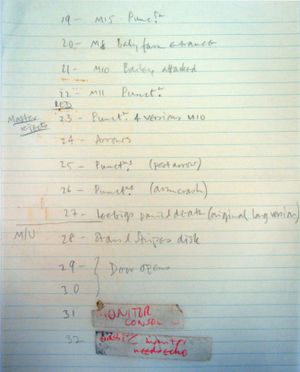 19 - M15 Punct.n
20 - M8 Baby farm entrance
21 - M10 Bailey attacked
22 - M11 Punct.n
RED
Master rejects
23 - Punct.n 4 versions M10
24 - Arrows
25 - Punct.ns (post arrow)
26 - Punct.ns (
27 - panics death (original long version)
M/U
28 - Stars & Stripes disk
29 -
30
Door opens
31
MONITOR
CONSOL
32
want/
need echo